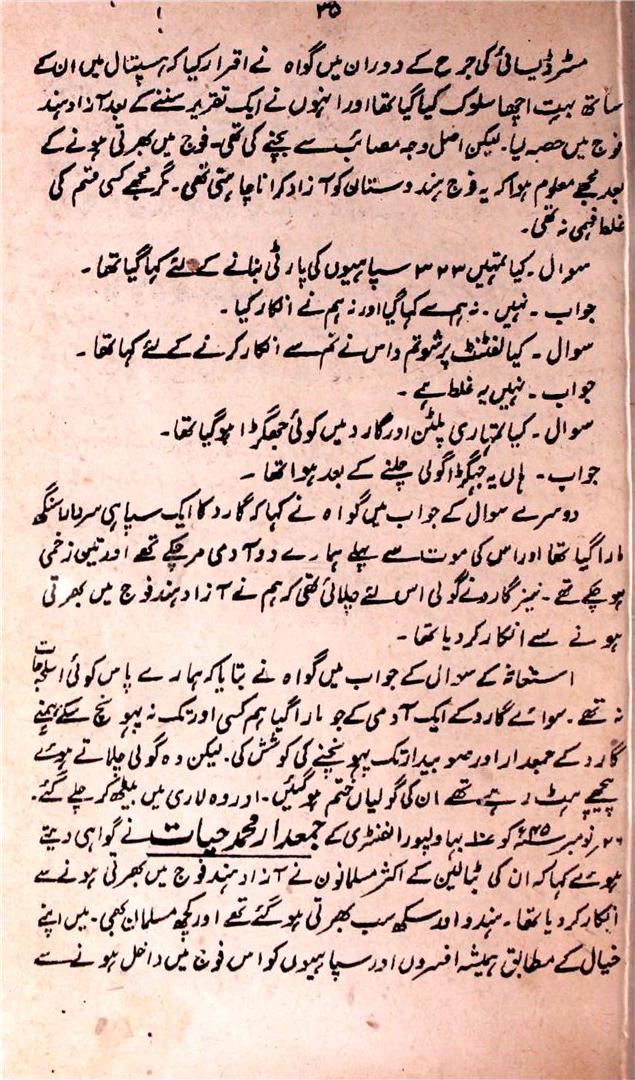 ۳۵
مسٹر ڈیسائی کی جرح کے دوران میں گواہ نے اقرار کیا کہ ہسپتال میں ان کے
ساتھ بہت اچھا سلوک کیا گیا تھا اور انہوں نے ایک تقریر سننے کے بعد آزاد ہند
فوج میں حصہ لیا۔ لیکن اصل وجہ مصائب سے بچنے کی تھی۔ فوج میں بھرتی ہونے کے
بعد مجھے معلوم ہوا کہ یہ فوج ہندوستان کو آزاد کرانا چاہتی تھی۔ مگر مجھے کسی قسم کی
غلط فہمی نہ تھی۔
سوال۔ کیا تمہیں ۳۲۳ سپاہیوں کی پارٹی بنانے کے لئے کہا گیا تھا۔
جواب۔ نہیں۔ نہ ہم سے کہا گیا اور نہ ہم نے انکار کیا۔
سوال۔ کیا لفٹنٹ پرشوتم داس نے تم سے انکار کرنے کے لئے کہا تھا۔
جواب۔ نہیں یہ غلط ہے۔
سوال۔ کیا تمہاری پلٹن اور گارد میں کوئی جھگڑا ہو گیا تھا۔
جواب۔ ہاں یہ جھگڑا گولی چلنے کے بعد ہوا تھا۔
دوسرے سوال کے جواب میں گواہ نے کہا کہ گارد کا ایک سپاہی سردارا سنگھ
مارا گیا تھا اور اس کی موت سے پہلے ہمارے دو آدمی مر چکے تھے اور تین زخمی
ہو چکے تھے۔ نیز گارد نے گولی اس لئے چلائی تھی کہ ہم نے آزاد ہند فوج میں بھرتی
ہونے سے انکار کر دیا تھا۔
استغاثہ کے سوال کے جواب میں گواہ نے بتایا کہ ہمارے پاس کوئی اسلحہ جات
نہ تھے۔ سوائے گارد کے ایک آدمی کے جو مارا گیا ہم کسی اور تک نہ پہونچ سکے ہم نے
گارد کے جمعدار اور صوبیدار تک پہونچنے کی کوشش کی۔ لیکن وہ گولی چلاتے ہوئے
پیچھے ہٹ رہے تھے ان کی گولیاں ختم ہو گئیں۔ اور وہ لاری میں بیٹھ کر چلے گئے۔
۲۶ نومبر ۴۵ء کو ۱ بہاولپور انفنٹری کے جمعدار محمد حیات نے گواہی دیتے
ہوئے کہا کہ ان کی بٹالین کے اکثر مسلمانوں نے آزاد ہند فوج میں بھرتی ہونے سے
انکار کر دیا تھا۔ ہندو اور سکھ سب بھرتی ہو گئے تھے اور کچھ مسلمان بھی۔ میں اپنے
خیال کے مطابق ہمیشہ افسروں اور سپاہیوں کو اس فوج میں داخل ہونے سے